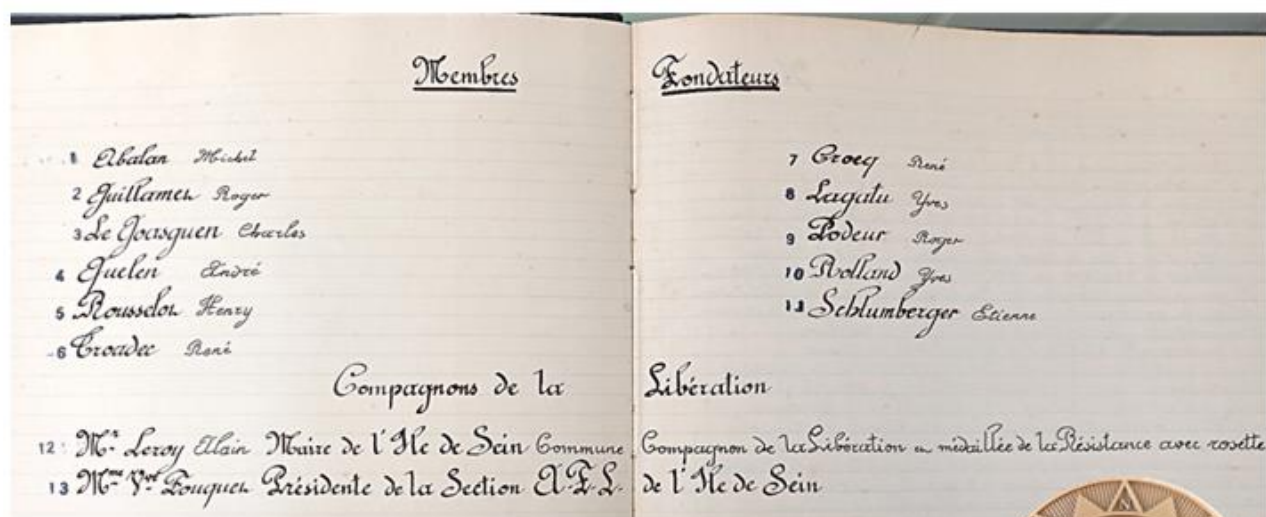 Membres Fondateurs
1 Abalan Michel
2 Guillamet Roger
3 Le Goasguen Charles
4 Quelen André
5 Rousselot Henry
6 Troadec René
7 Crocq René
8 Lagatu Yves
9 Podeur Roger
10 Rolland Yves
11 Schlumberger Etienne
Compagnons de la Libération
12 Mr Leroy Alain Maire de l'Ile de Sein Commune Compagnon de la Libération et médaillée de la Résistance avec rosette
13 Mme Vve Fouquet Présidente de la Section A.F.L. de l'Ile de Sein
N